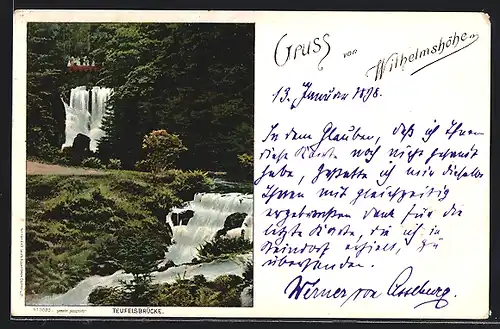 Gruss von Wilhelmshöhe
13. Januar 1898.
In dem Glauben, daß ich Ihnen
diese Karte noch nicht gesandt
habe, gestatte ich mir dieselbe
Ihnen mit gleichzeitig
ergebenstem Dank für die
letzte Karte, die ich in
erhielt, zu
übersenden.
Werner von Asseburg.
TEUFELSBRÜCKE.